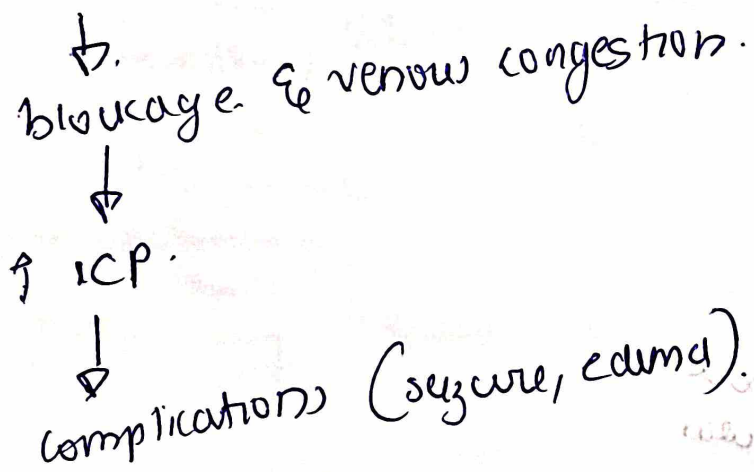 ↓
blockage & venous congestion.
↓
↑ ICP.
↓
complications (seizure, edema).